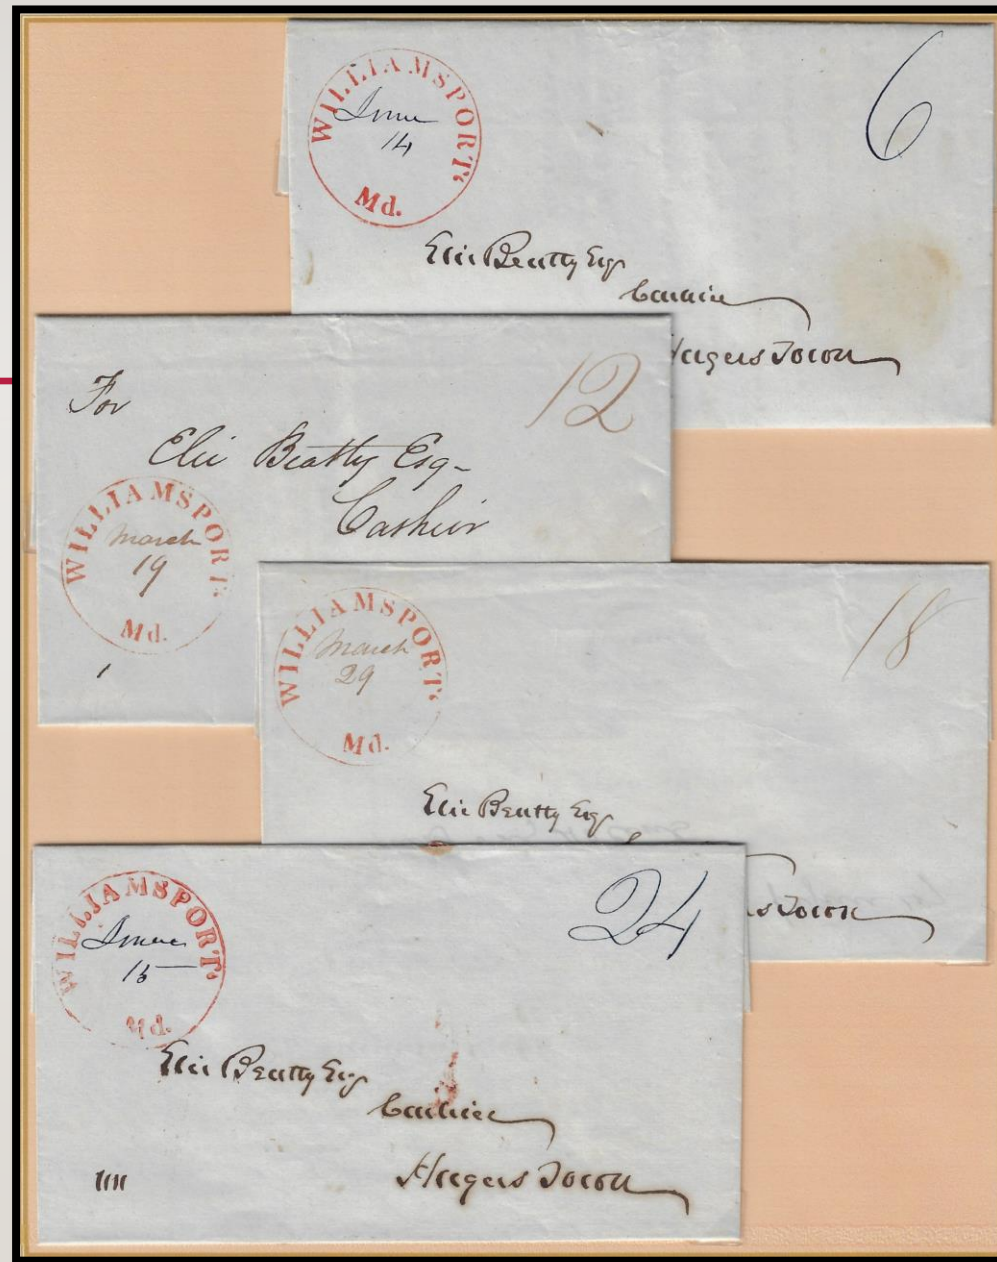 WILLIAMSPORT
June
14
Md.
6
Elie Beatty Esq
Cashier
Hagers Town
For
12
Elie Beatty Esq-
Cashier
WILLIAMSPORT.
March
19
Md.
WILLIAMSPORT
March
29
Md.
18
Elie Beatty Esq
s Town
WILLIAMSPORT
June
15
Md.
24
Elie Beatty Esq
Cashier
Hagers Town